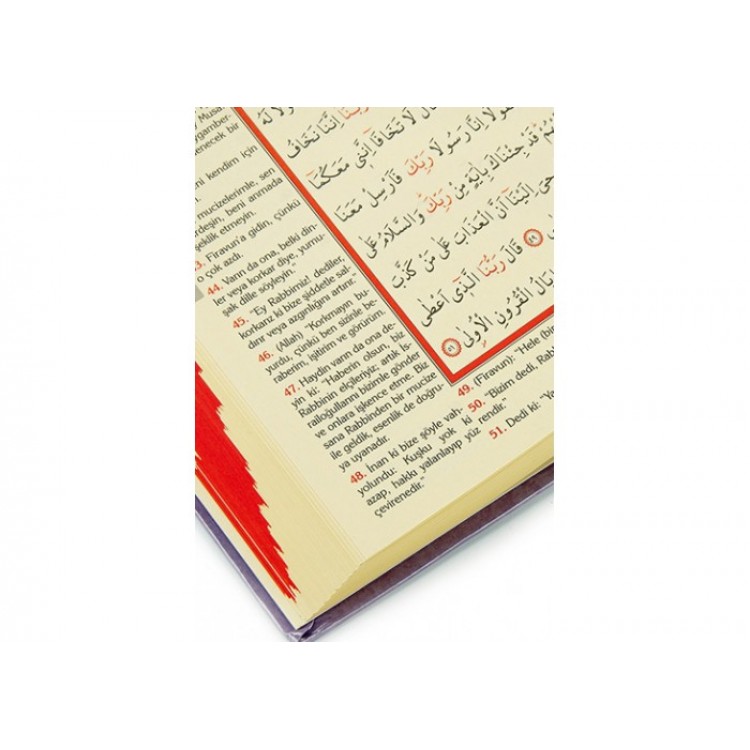 وَلَا لَهُ
رَبَّنَا اِنَّنَا نَخَافُ
قَالَ لَا تَخَافَا اِنَّنٖى مَعَكُمَا
فَقُولَا اِنَّا رَسُولَا رَبِّكَ فَاَرْسِلْ مَعَنَا
قَدْ جِئْنَاكَ بِاٰيَةٍ مِنْ رَبِّكَ وَالسَّلَامُ عَلٰى
اِلَيْنَا اَنَّ الْعَذَابَ عَلٰى مَنْ كَذَّبَ
٤٩ قَالَ رَبُّنَا الَّذٖٓى اَعْطٰى
بَالُ الْقُرُونِ الْاُولٰى ٥١
Musa.
ygamber-
enecek bir
ni kendim için
mucizelerimle, sen
rdeşin, beni anmada
şeklik etmeyin.
3. Firavun'a gidin, çünkü
o çok azdı.
44. Varın da ona, belki din-
ler veya korkar diye, yumu-
şak dille söyleyin."
45. "Ey Rabbimiz! dediler,
korkarız ki bize şiddetle sal-
dırır veya azgınlığını artırır."
46. (Allah) "Korkmayın bu-
yurdu, çünkü ben sizinle be-
raberim, işitirim ve görürüm.
47. Haydin varın da ona de-
yin ki: "Haberin olsun, biz
Rabbinin elçileriyiz; artık İs-
railoğullarını bizimle gönder
ve onlara işkence etme. Biz
sana Rabbinden bir mucize
ile geldik, esenlik de doğru-
ya uyanadır.
48. İnan ki bize şöyle vah-
yolundu: Kuşku yok ki
azap, hakkı yalanlayıp yüz
çevirenedir."
49. (Firavun): "Hele (bir
50. "Bizim dedi, Rabb
rendir."
51. Dedi ki: "Ya